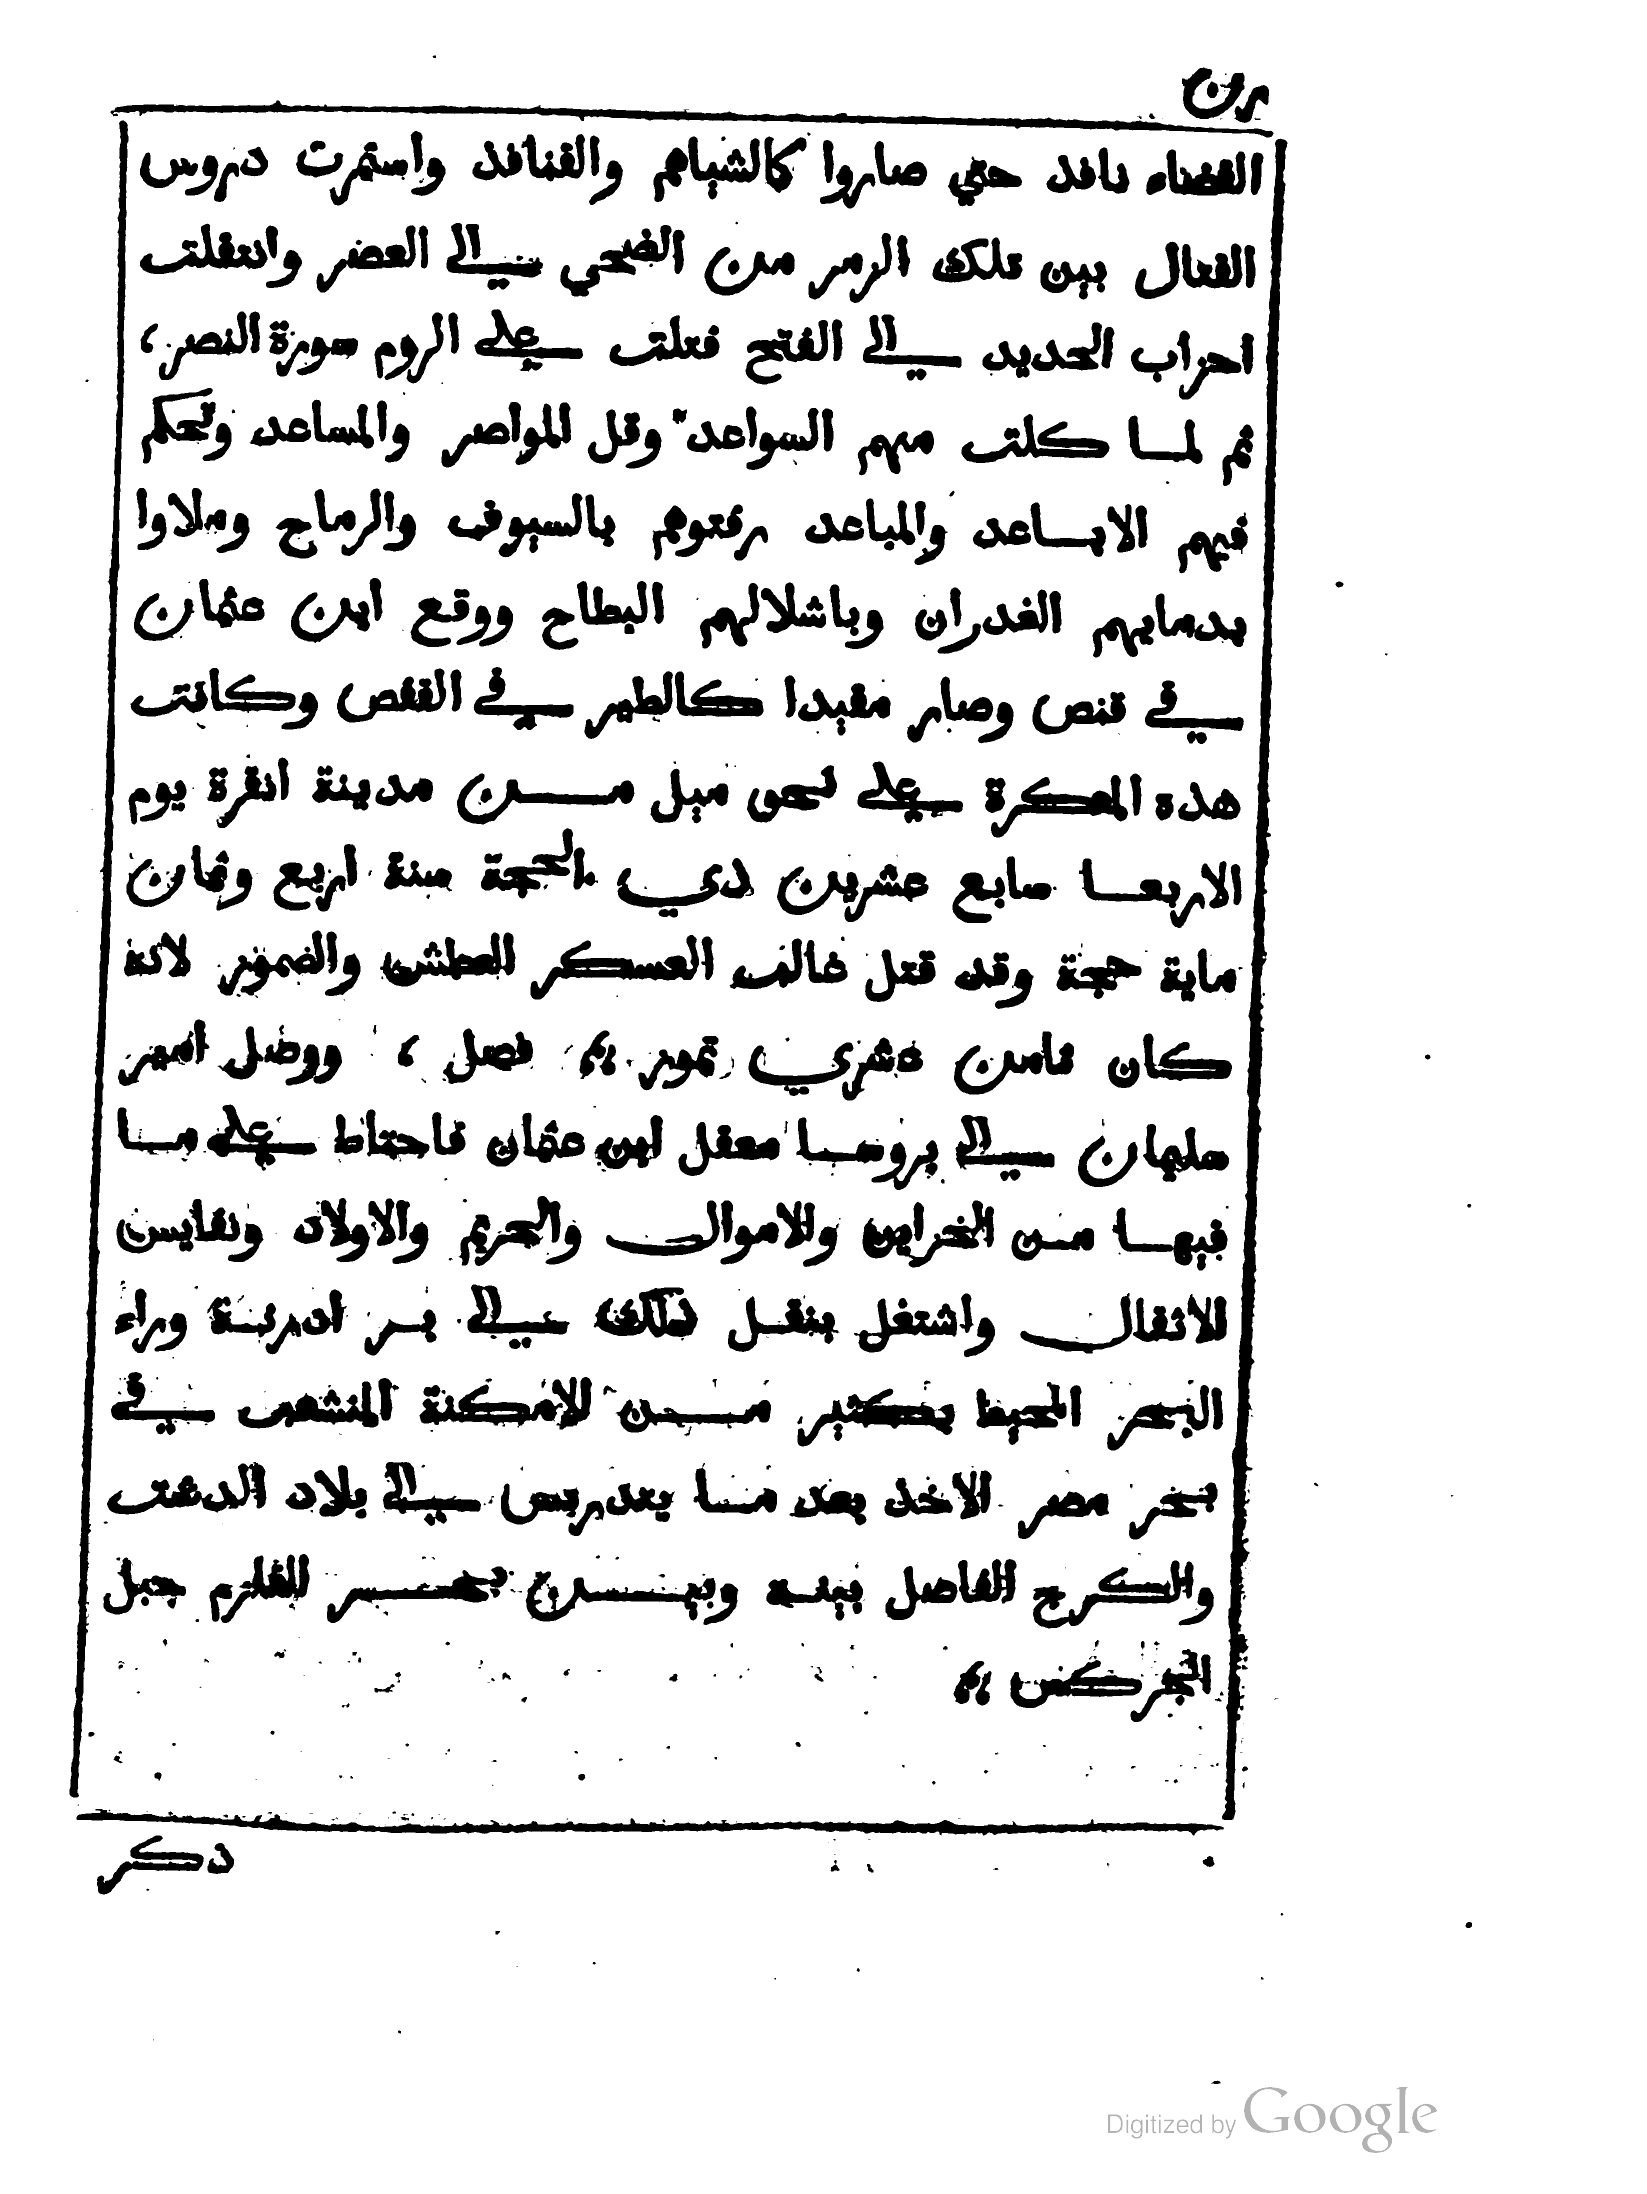 رن
القضاء نافذ حتي صاروا كالشياهم والقنافذ واستمرت دروس
القتال بين تلك الزمر من الضحي الي العصر وانتقلت
احزاب الحديد الي الفتح فتلت علي الروم سورة النصر،
ثم لما كلت منهم السواعد وقل المواصر والمساعد وتحكم
فيهم الاباعد والمباعد رفتوهم بالسيوف والرماح وملاوا
بدمايهم الغدران وباشلالهم البطاح ووقع ابن عثمان
في قنص وصار مقيدا كالطير في القفص وكانت
هذه المعكرة علي نحو ميل من مدينة انقرة يوم
الاربعا سابع عشرين ذي الحجة سنة اربع وثمان
ماية حجة وقد قتل غالب العسكر العطش والضمور لانه
كان ثامن عشري تموز فصل ، ووصل امير
سليمان الي بروسا معقل ابن عثمان فاحتاط علي ما
فيها من الخزاين والاموال والحريم والاولاد ونفايس
الاثقال واشتغل بنقل ذلك الي بر ادرنة وراء
البحر المحيط بكثير من الامكنة المنشعب في
بحر مصر الاخذ بعد ما يندربس الي بلاد الدشت
والكرج الفاصل بينه وبين بحر القلزم جبل
الجركس
ذكر
Digitized by Google